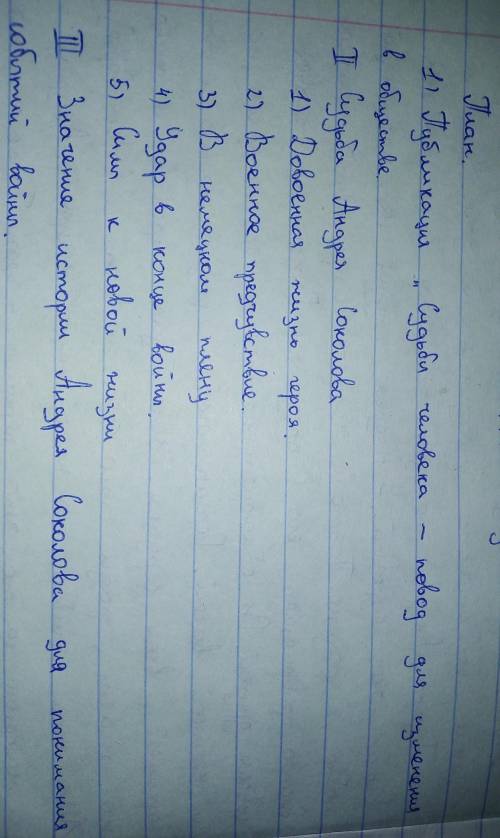 План.
1) Публикация „Судьби человека – повод для изменения
в обществе.
II Судьба Андрея Соколова
1) Довоенная жизнь героя.
2) Военное предчувствие.
3) В немецком плену
4) Удар в конце войны.
5) Силы к новой жизни
III Значение истории Андрея Соколова для понимания
событий войны.